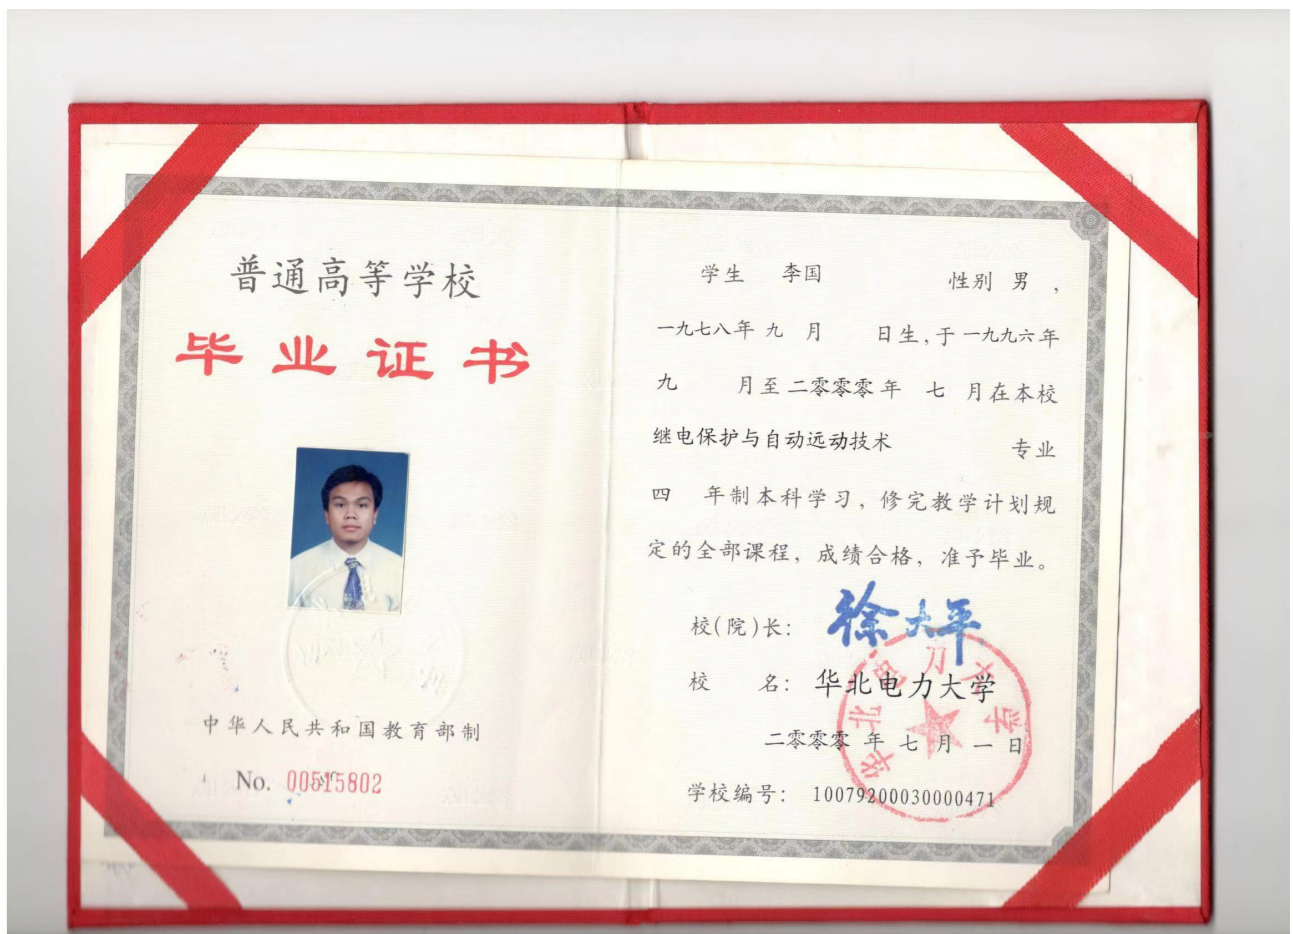 普通高等学校
毕业证书
中华人民共和国教育部制
No. 00515802
学生 李国 性别 男，
一九七八年 九 月 日生，于一九九六年
九 月至二零零零年 七 月在本校
继电保护与自动远动技术 专业
四 年制本科学习，修完教学计划规
定的全部课程，成绩合格，准予毕业。
校(院)长： 徐大平
校 名： 华北电力大学
二零零零 年 七 月 一 日
学校编号： 10079200030000471
华北电力大学